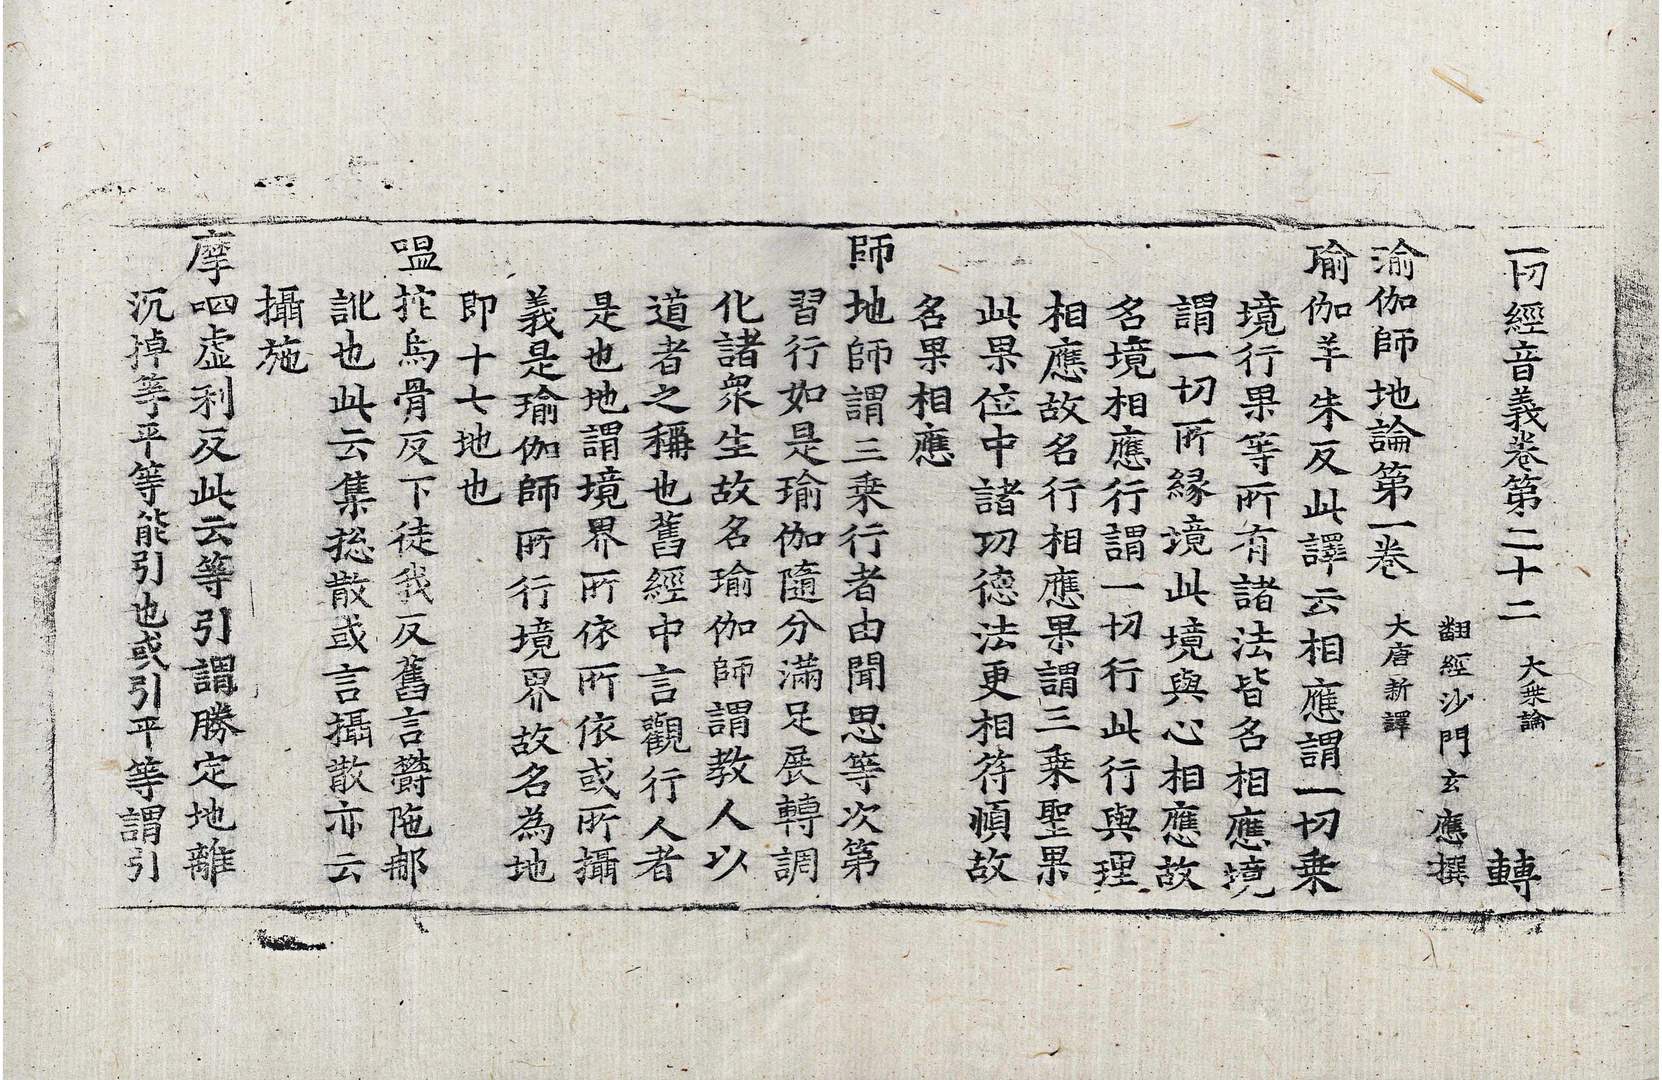 一切經音義卷第二十二 大乗論 轉
翻經沙門玄應撰
瑜伽師地論第一卷 大唐新譯
瑜伽羊朱反此譯云相應謂一切乗
境行果等所有諸法皆名相應境
謂一切所緣境此境與心相應故
名境相應行謂一切行此行與理
相應故名行相應果謂三乗聖果
此果位中諸功德法更相符順故
名果相應
師地師謂三乗行者由聞思等次第
習行如是瑜伽隨分滿足展轉調
化諸衆生故名瑜伽師謂教人以
道者之稱也舊經中言觀行人者
是也地謂境界所依所依或所攝
義是瑜伽師所行境界故名為地
即十七地也
嗢拕烏骨反下徒我反舊言欝陁那
訛也此云集揔散或言攝散亦云
攝施
摩呬虛利反此云等引謂勝定地離
沉掉等平等能引也或引平等謂引